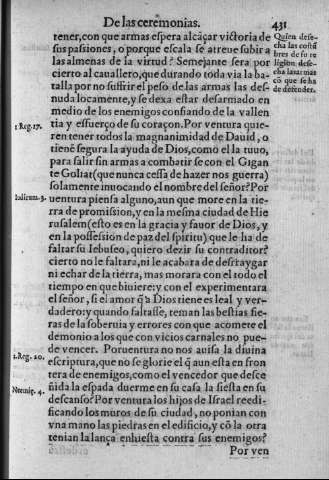 De las ceremonias. 431
tener, con que armas espera alcãçar victoria de
sus passiones, o porque escala se atreue subir a
las almenas de la virtud? Semejante sera por
cierto al cauallero, que durando toda via la ba-
talla por no suffrir el peso de las armas las des-
nuda locamente, y se dexa estar desarmado en
medio de los enemigos confiando de la vallen
tia y esfuerço de su coraçon. Por ventura quie-
ren tener todos la magnanimidad de Dauid, o
tienẽ segura la ayuda de Dios, como el la tuuo,
para salir sin armas a combatir se con el Gigan
te Goliat (que nunca cessa de hazer nos guerra)
solamente inuocando el nombre del señor? Por
uentura piensa alguno, aun que more en la tie-
rra de promission, y en la mesma ciudad de Hie
rusalem (esto es en la gracia y fauor de Dios, y
en la possessiõn de paz del spiritu) que le ha de
faltar su Iebuseo, quiero dezir su contraditor?
cierto no le faltara, ni le acabara de desrraygar
ni echar de la tierra, mas morara con el todo el
tiempo en que biuiere: y con el experimentara
el señor, si el amor q̃ a Dios tiene es leal y ver-
dadero: y quando faltasse, teman las bestias fie-
ras de la soberuia y errores con que acomete el
demonio a los que con vicios carnales no pue-
de vencer. Por uentura no nos auisa la diuina
escriptura, que no se glorie el q̃ aun esta en fron
tera de enemigos, como el vencedor que desce
ñida la espada duerme en su casa la siesta en su
descanso? Por ventura los hijos de Israel reedi-
ficando los muros de su ciudad, no ponian con
vna mano las piedras en el edificio, y cõ la otra
tenian la lança enhiesta contra sus enemigos?
Por ven
Quien dese-
cha las costũ
bres de su re
ligion dese-
cha las armas
cõ que se ha
de defender.
1 Reg. 17.
Iudicum. 3.
1. Reg. 20.
Neemię. 4.